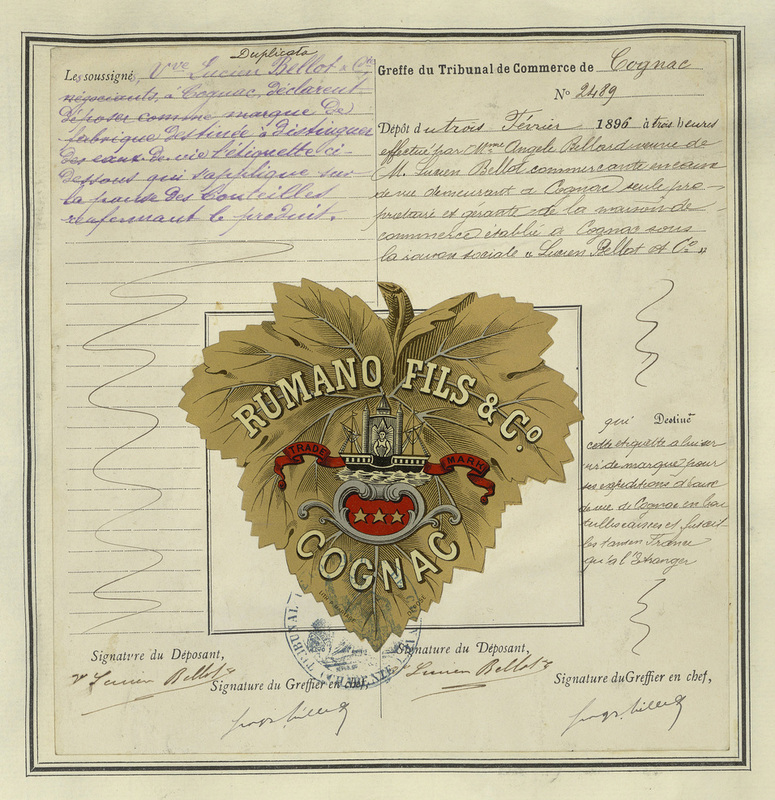 Duplicata
Les soussigné, Vve Lucien Bellot & Cie
négociants, à Cognac, déclarent
déposer comme marque de
fabrique destinée à distinguer
des eaux-de-vie l'étiquette ci-
dessous qui s'applique sur
la panse des bouteilles
renfermant le produit.
Greffe du Tribunal de Commerce de Cognac
No 2489
Dépôt du trois Février 1896 à trois heures
effectué par Mme Angele Bellard veuve de
M. Lucien Bellot commerçante en eaux
de vie demeurant à Cognac, seule pro-
prietaire et gérante de la maison de
commerce établie à Cognac sous
la raison sociale « Lucien Bellot et Co »
RUMANO FILS & Co.
TRADE MARK
COGNAC
qui Destine
cette etiquette a lui ser
vir de marque pour
ses expeditions d'eaux
de vie de Cognac en bou
teilles caisses et futs
tant en France
qu'a l'Etranger
TRIBUNAL
CHARENTE
Signature du Déposant,
Vve Lucien Bellot & Cie
Signature du Greffier en chef,
Signature du Déposant,
Lucien Bellot & Cie
Signature du Greffier en chef,